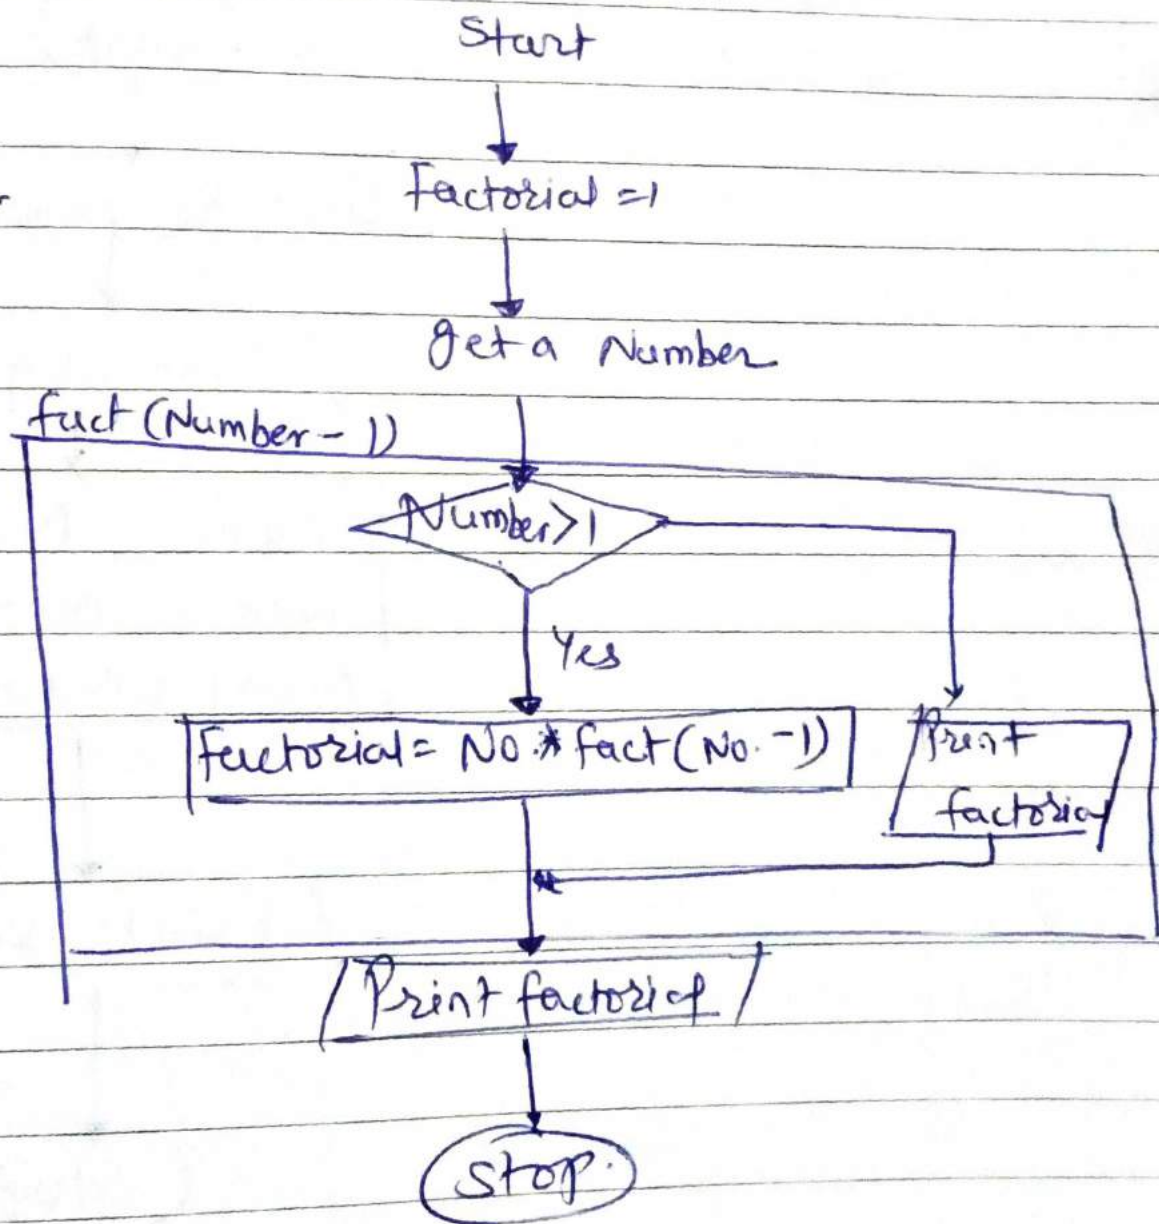 Start
Factorial =1
get a Number
fact (Number - 1)
Number>1
Yes
factorial= No.* fact (No. -1)
Print
factorial
Print factorial
Stop.